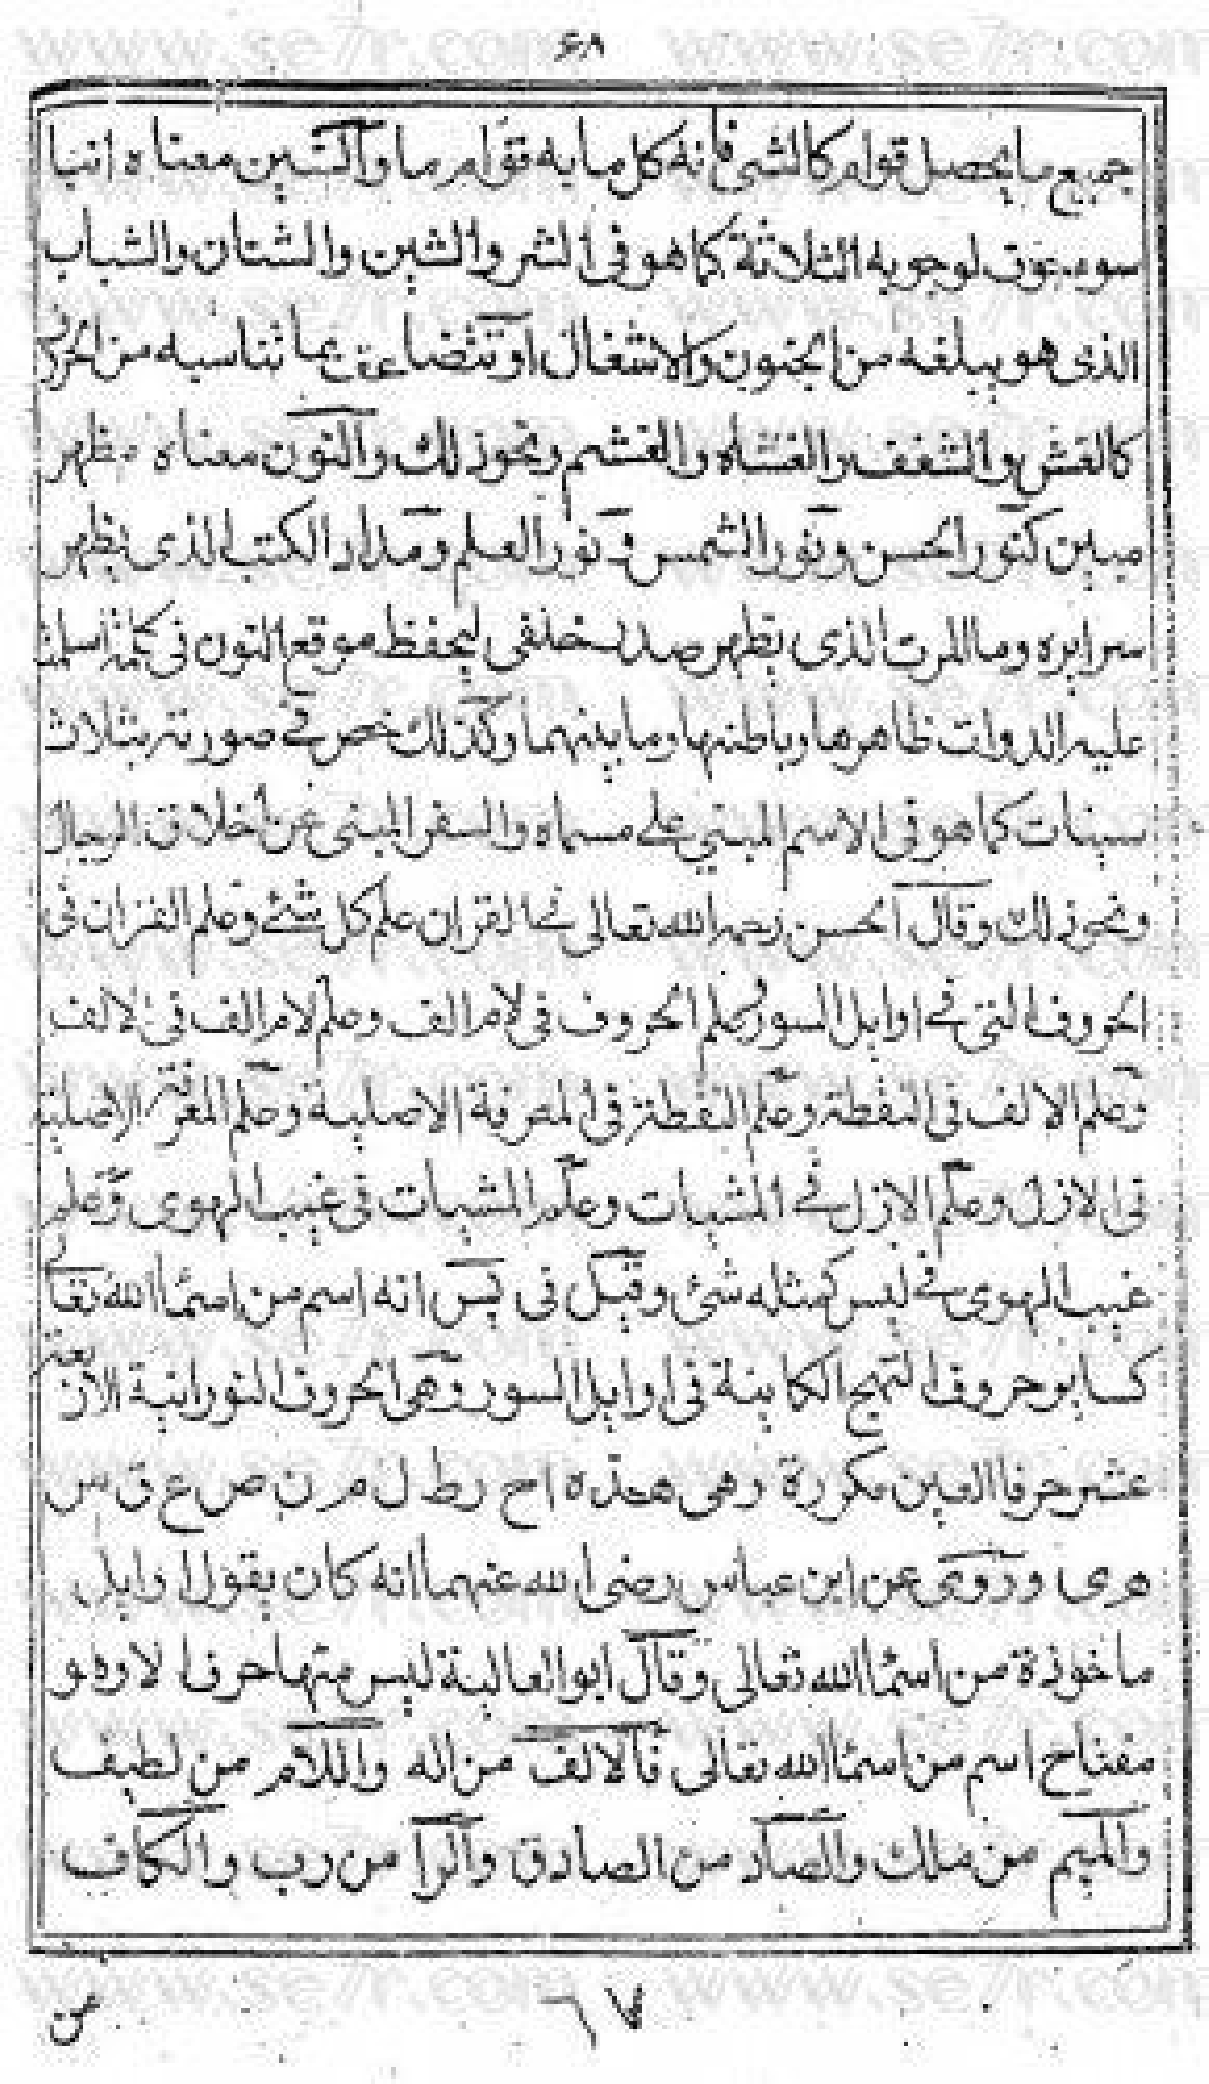 www.se7r.com www.se7r.com
٤٨
جميع ما يحصل قوام كالشى فانه كل ما به قوام ما والشين معناه انبا
لوجوبه الثلاثة كما هو فى الشر والشين والشتان والشباب
الذى هو يبلغه من الجنون والاشغال او بما تناسبه من
كالغش والشغف والغشاه والغشم ونحو ذلك والنون معناه مظهر
مبين كنور الحسن ونور الشمس ونور العلم ومداد الكتب الذى يظهر
سرايره وما الذى يظهر خلفى ليحفظ موقع النون فى كلمة
عليه الدوات ظاهرها وباطنها وما بينهما وكذلك خص فى صورته بثلاث
سينات كما هو فى الاسم المبنى على مسماه والسفر المبنى عن اخلاق الرجال
ونحو ذلك وقال الحسن رحمه الله تعالى علم القران علم كل شئ وعلم القران فى
الحروف التى فى اوايل السور وعلم الحروف فى لام الف وعلم لام الف فى الالف
وعلم الالف فى النقطة وعلم النقطة فى المعرفة الاصلية وعلم المعرفة الاصلية
فى الازل وعلم الازل فى المشيات وعلم المشيات فى غيب الهوى وعلم
غيب الهوى فى ليس كمثله شئ وقيل فى يس انه اسم من اسما الله تعالى
كساير حروف التهج الكاينة فى اوايل السور وهى الحروف النورانية الاربعة
عشر حرفا الغير مكررة وهى هذه ا ح ر ط ل م ن ص ع ق س
ه ى وروى عن ابن عباس رضى الله عنهما انه كان يقول اوايل
ماخوذة من اسما الله تعالى وقال ابو العالية ليس منها حرفا الا وهو
مفتاح اسم من اسما الله تعالى فالالف من اله واللام من لطيف
والميم من ملك والصاد من الصادق والرا من رب والكاف
من
٦٧
www.se7r.com www.se7r.com